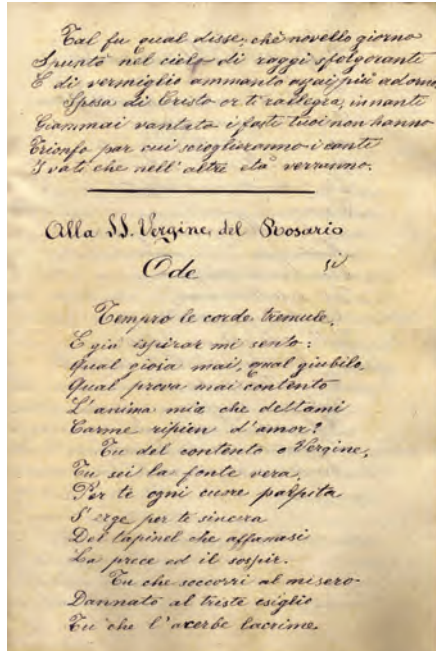 Tal fu qual disse, chè novello giorno
Spuntò nel cielo di raggi sfolgorante
E di vermiglio ammanto assai più adorno,
Sposa di Cristo or ti rallegra, innante
Giammai vantato i fasti tuoi non hanno
Trionfo par cui scioglieranno i canti
I vati che nell'altre età verranno.
Alla SS. Vergine del Rosario
Ode
si
Tempro le corde tremule,
E già ispirar mi sento:
Qual gioia mai, qual giubilo,
Qual prova mai contento
L'anima mia che dettami
Carme ripien d'amor?
Tu del contento o Vergine,
Tu sei la fonte vera,
Per te ogni cuore palpita
S'erge per te sincera
Del tapinel che affannasi
La prece ed il sospir.
Tu che soccorri al misero
Dannato al triste esiglio
Tu che l'acerbe lacrime